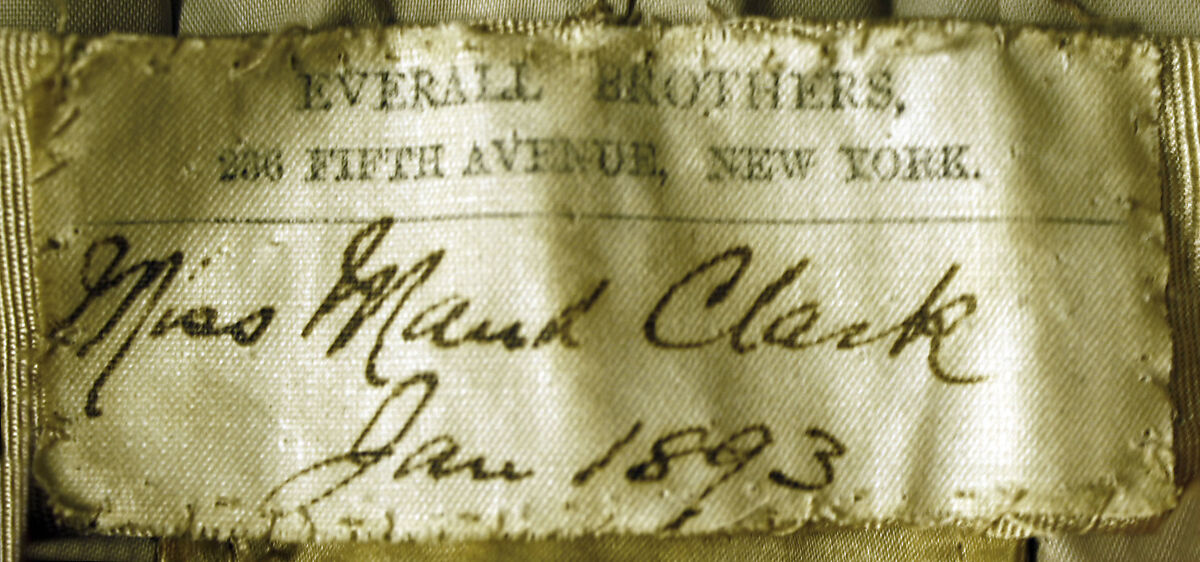 EVERALL BROTHERS,
236 FIFTH AVENUE, NEW YORK.
Miss Maud Clark
Jan 1893